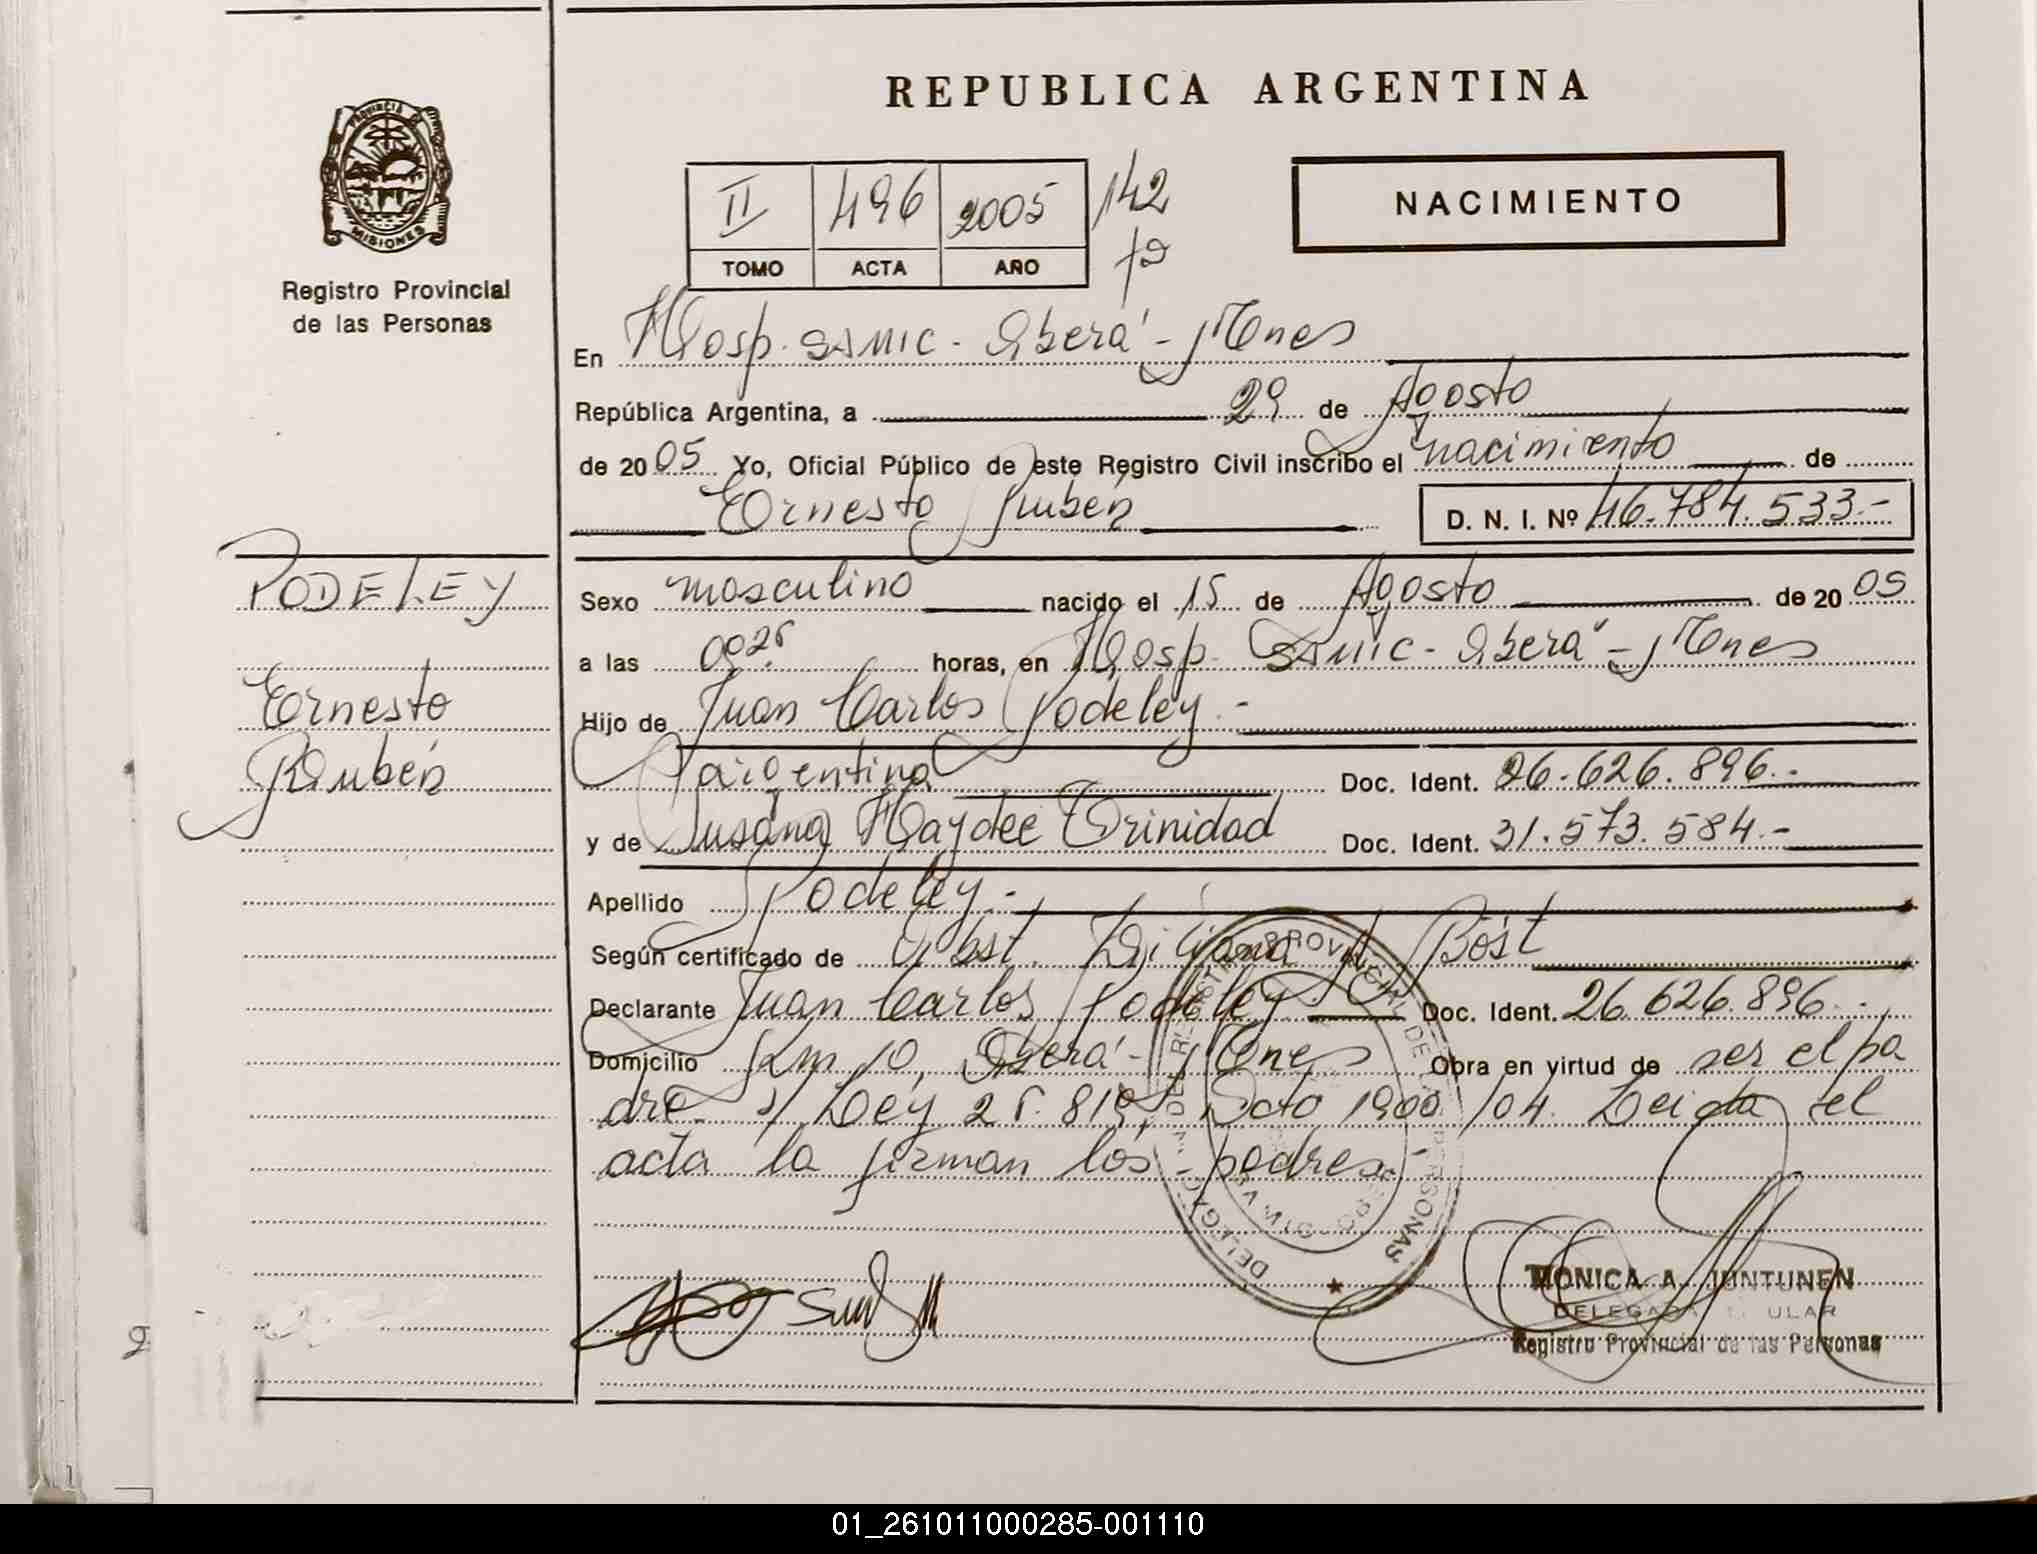 REPUBLICA ARGENTINA
PROVINCIA DE
MISIONES
Registro Provincial
de las Personas
II 496 2005 142
TOMO ACTA AÑO
NACIMIENTO
En Hosp. SAMIC - Oberá - Mnes
República Argentina, a 29 de Agosto
de 2005 Yo, Oficial Público de este Registro Civil inscribo el nacimiento de
Ernesto Rubén D. N. I. Nº 46.784.533.-
PODELEY
Ernesto
Rubén
Sexo masculino nacido el 15 de Agosto de 2005
a las horas, en Hosp. SAMIC - Oberá - Mnes
Hijo de Juan Carlos Podeley.-
argentina Doc. Ident. 26.626.896.-
y de Susana Haydee Trinidad Doc. Ident. 31.573.584.-
Apellido Podeley.-
Según certificado de Obst. Liliana A. Böst
Declarante Juan Carlos Podeley.- Doc. Ident. 26.626.896.-
Domicilio Km 10, Oberá - Mnes Obra en virtud de ser el pa
dre. s/ Ley 25.819, Dcto 1900/04. Leida el
acta la firman los padres
MONICA A. JUNTUNEN
DELEGADA TITULAR
Registro Provincial de las Personas
01_261011000285-001110